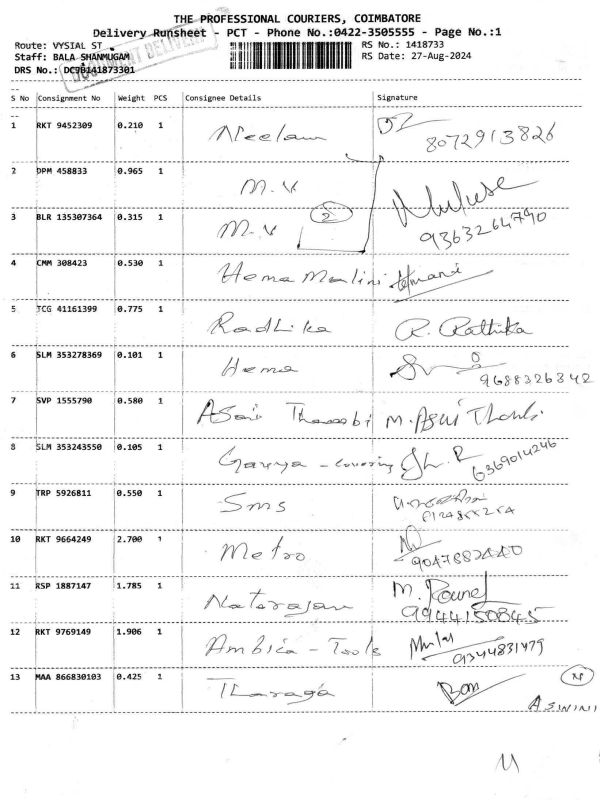 THE PROFESSIONAL COURIERS, COIMBATORE
Delivery Runsheet - PCT - Phone No.:0422-3505555 - Page No.:1
Route: VYSIAL ST RS No.: 1418733
Staff: BALA SHANMUGAM RS Date: 27-Aug-2024
DRS No.: DC9B141873301
DOCUMENT DELIVERY
S No Consignment No Weight PCS Consignee Details Signature
1 RKT 9452309 0.210 1 Neelam 8072913826
2 DPM 458833 0.965 1 M.V
3 BLR 135307364 0.315 1 M.V 2 9363264790
4 CMM 308423 0.530 1 Hema Malini
5 TCG 41161399 0.775 1 Radhika R. Rathika
6 SLM 353278369 0.101 1 Hema 9688326342
7 SVP 1555790 0.580 1 M. Asai Thambi
8 SLM 353243550 0.105 1 covering 6369014246
9 TRP 5926811 0.550 1 Sms
10 RKT 9664249 2.700 1 Metro
11 RSP 1887147 1.785 1 Natarajan M. 9944150845
12 RKT 9769149 1.906 1 Ambica - Tools 9344831479
13 MAA 866830103 0.425 1 Tharaga
ASWINI